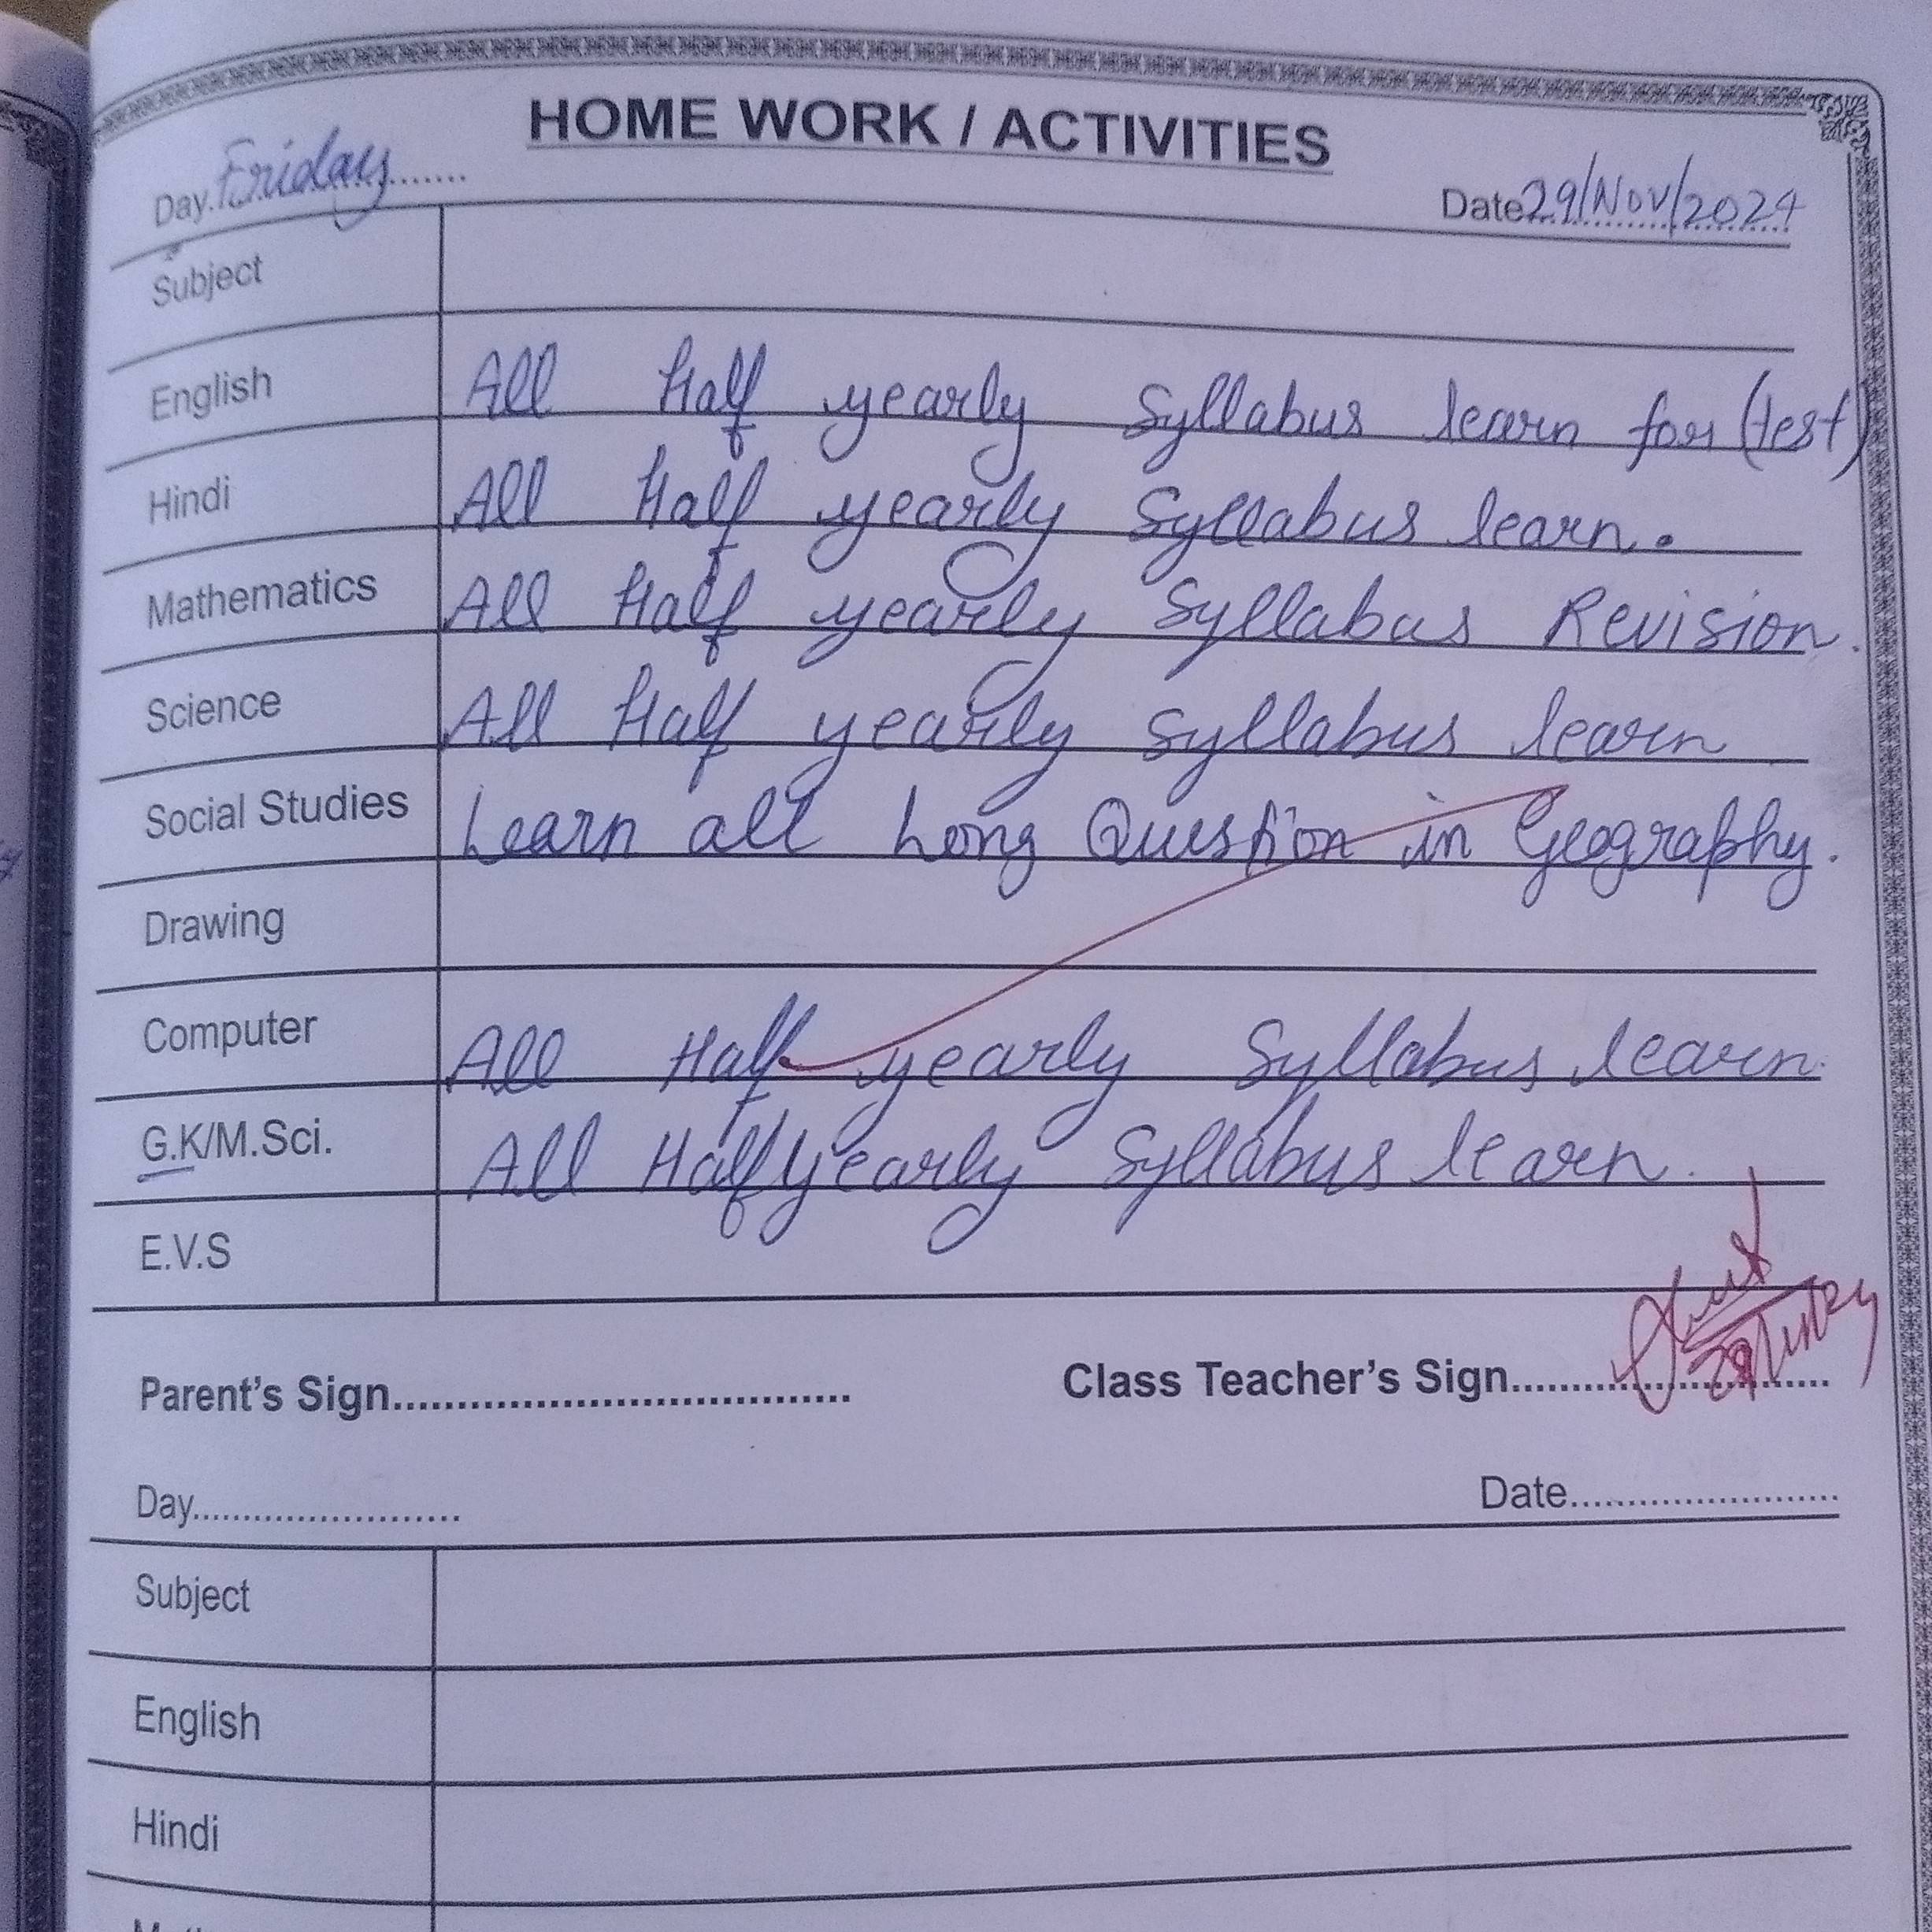 HOME WORK / ACTIVITIES
Day. Friday........ Date..29/Nov/2024
Subject
English All Half yearly Syllabus learn for (test)
Hindi All Half yearly Syllabus learn.
Mathematics All Half yearly Syllabus Revision.
Science All Half yearly Syllabus learn
Social Studies Learn all Long Question in Geography.
Drawing
Computer All Half yearly Syllabus learn.
G.K/M.Sci. All Half yearly Syllabus learn.
E.V.S
Parent's Sign.................................... Class Teacher's Sign.........................
Day........................ Date........................
Subject
English
Hindi